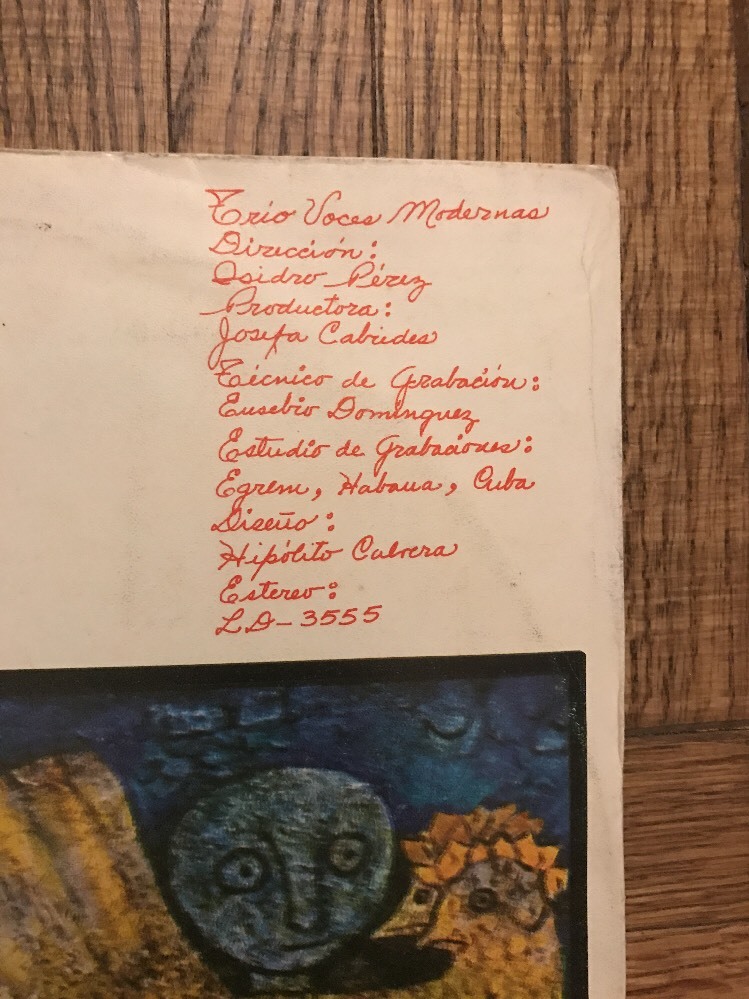 Trio Voces Modernas
Dirección:
Isidro Pérez
Productora:
Josefa Cabrides
Técnico de Grabación:
Eusebio Domínguez
Estudio de Grabaciones:
Egrem, Habana, Cuba
Diseño:
Hipólito Cabrera
Estereo:
LD-3555